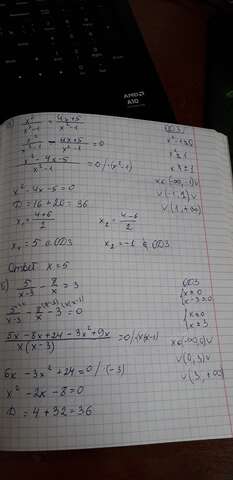 AMD
A10
a) x²/(x²-1) = (4x+5)/(x²-1)
x²/(x²-1) - (4x+5)/(x²-1) = 0
(x²-4x-5)/(x²-1) = 0 / ·(x²-1)
x²-4x-5=0
D=16+20=36
x₁=(4+6)/2 x₂=(4-6)/2
x₁=5 ∈ ОДЗ x₂=-1 ∉ ОДЗ
Ответ x=5
ОДЗ
x²-1≠0
x²≠1
x≠±1
x∈(-∞,-1)∪
∪(-1,1)∪
∪(1,+∞)
б) 5/(x-3) - 8/x = 3
5/(x-3) - 8/x - 3 = 0
(5x-8x+24-3x²+9x)/(x(x-3)) = 0
6x-3x²+24=0 / :(-3)
x²-2x-8=0
D=4+32=36
ОДЗ
x≠0
x-3≠0
x≠0
x≠3
x∈(-∞,0)∪
∪(0,3)∪
∪(3,+∞)